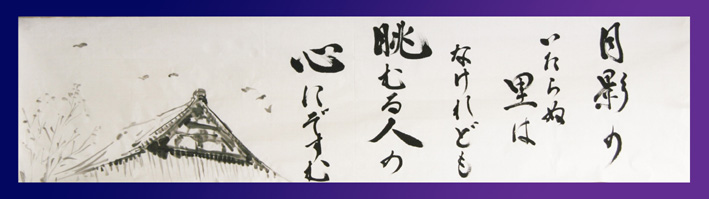 月影の
いたらぬ
里は
なけれども
眺むる人の
心にぞすむ